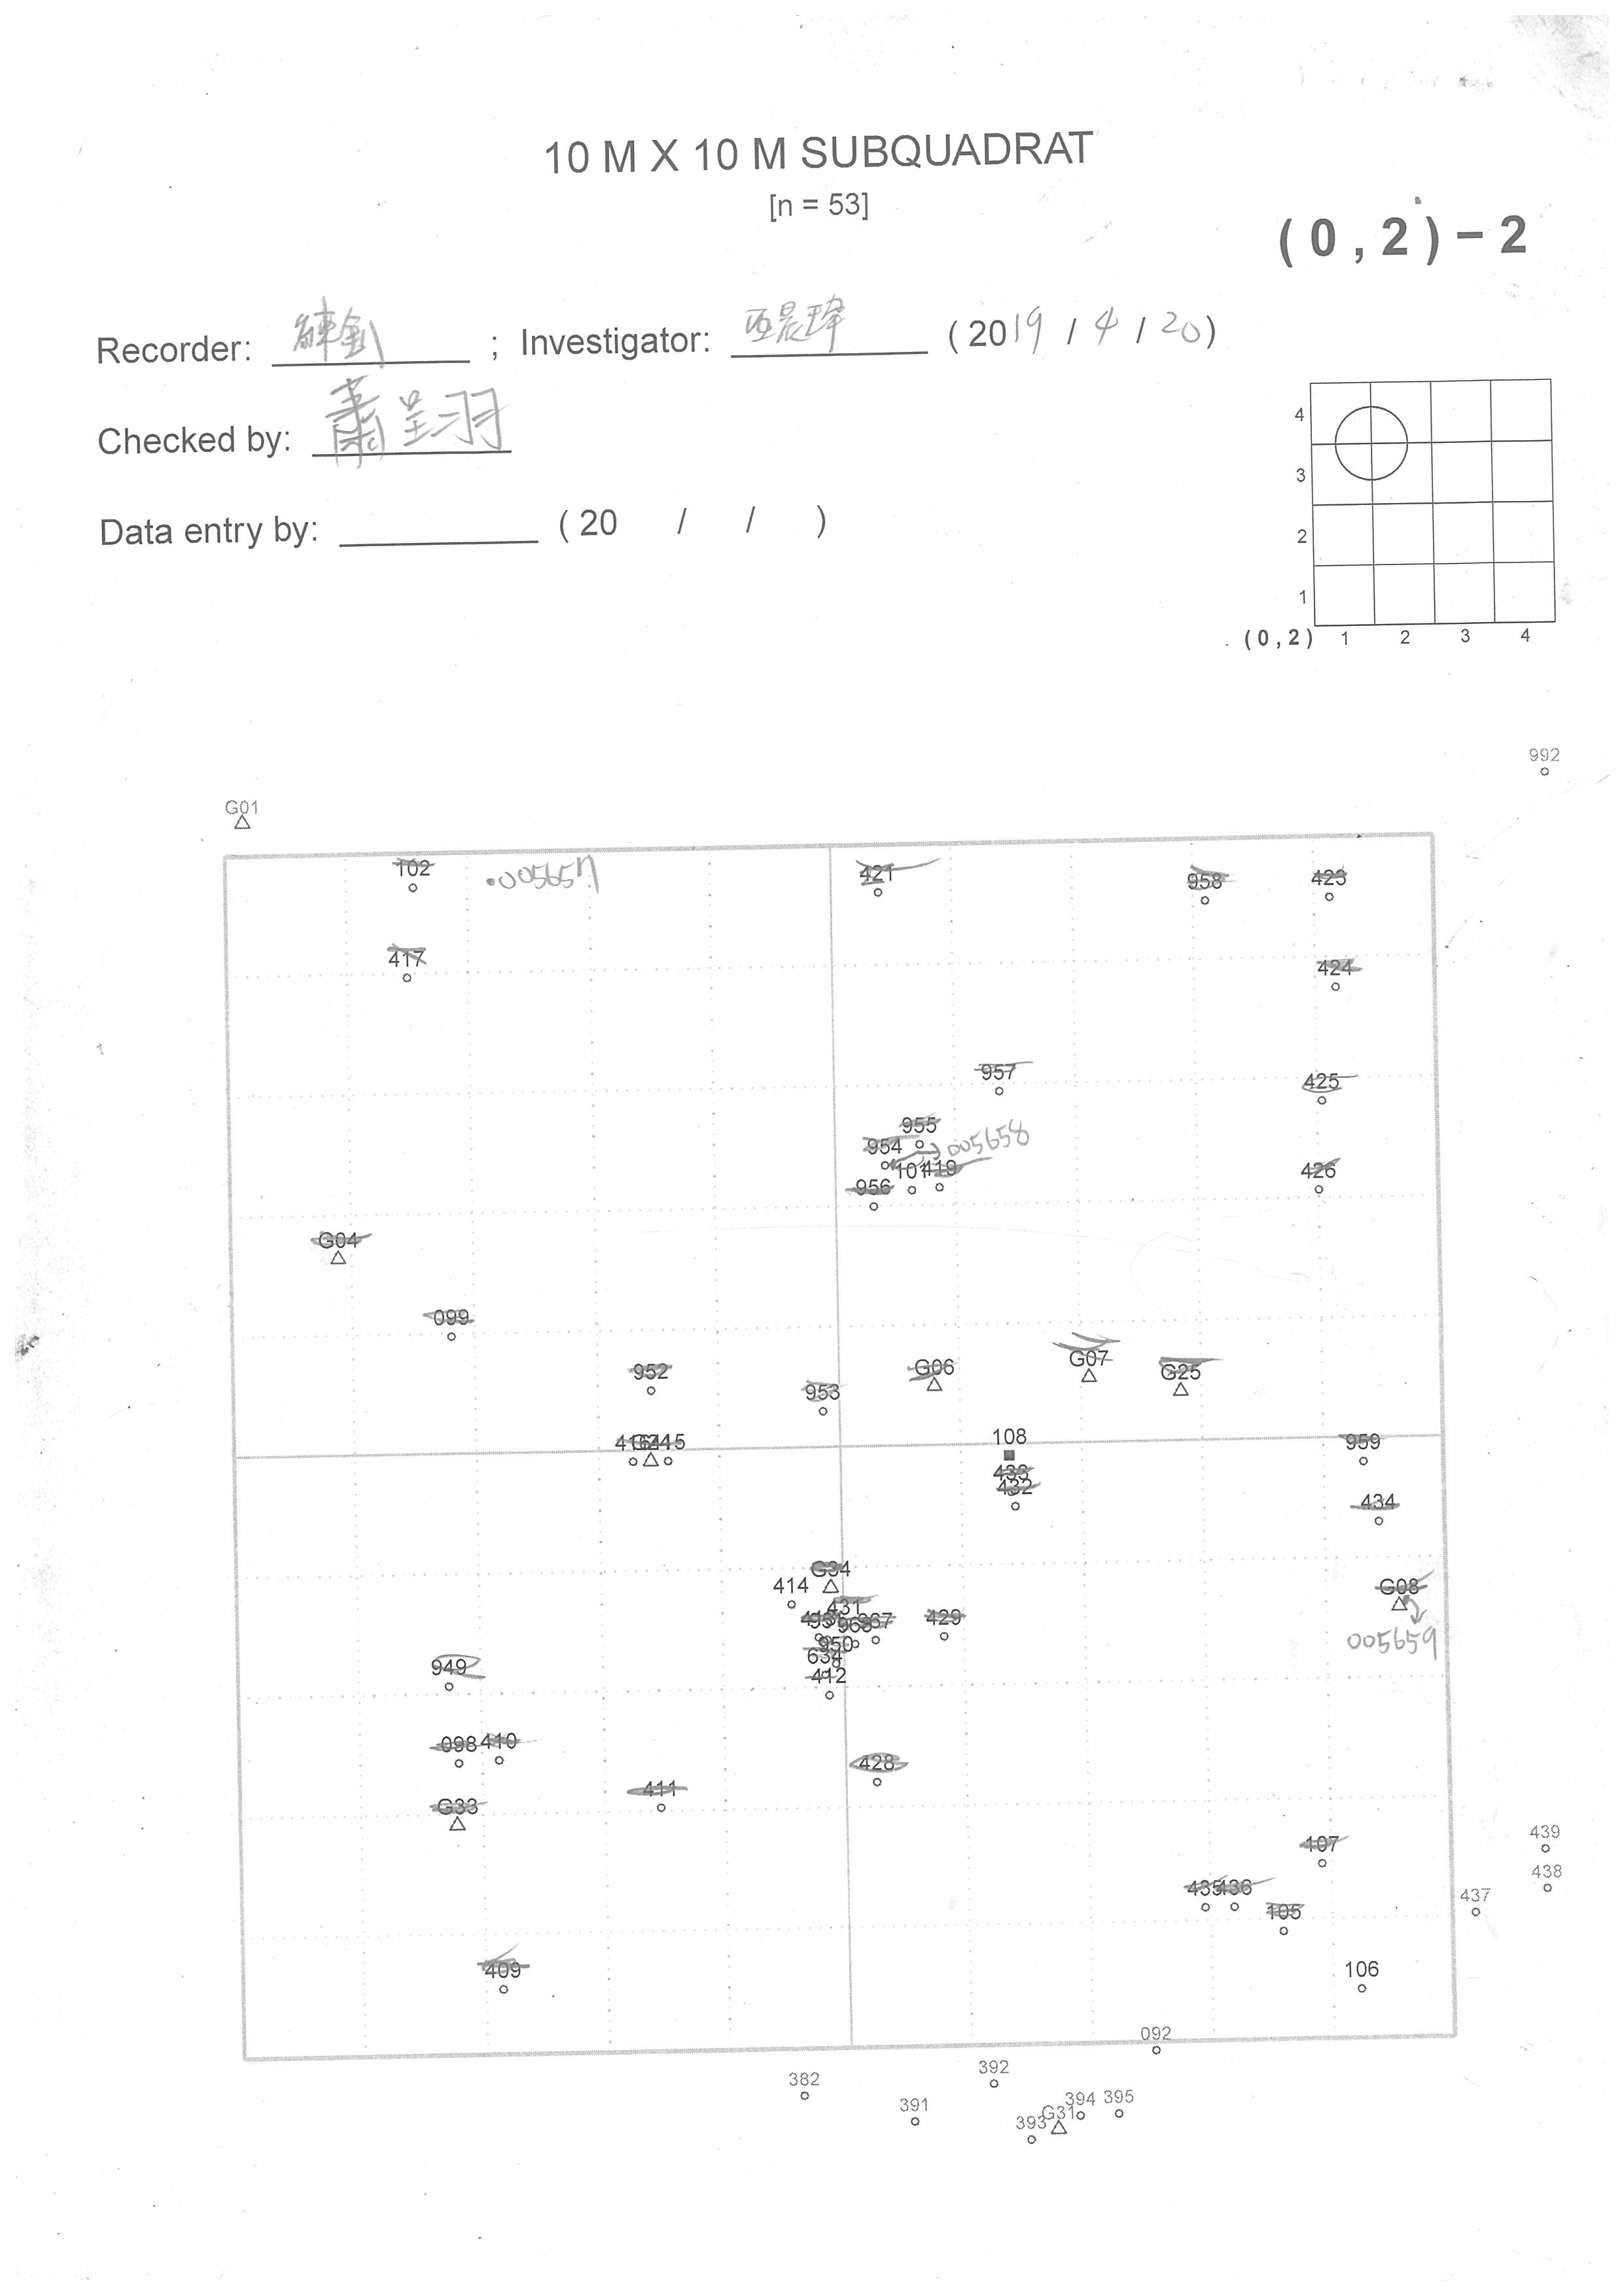 10 M X 10 M SUBQUADRAT
[n = 53]
(0,2)-2
Recorder: ; Investigator: (2019 / 4 / 20)
Checked by: 蕭呈羽
Data entry by: (20 / / )
4
3
2
1
(0,2) 1 2 3 4
992
G01
102 .005657 421 958 423
417 424
957 425
955
954 005658
101 419 426
956
G04
099
952 953 G06 G07 G25
415 108 959
433
432 434
G34
414 G08
431
967 429
005659
950
634
949 412
098 410
411 428
G33
107 439
435 436 438
105 437
409 106
092
382 392
391 394 395
393 G31